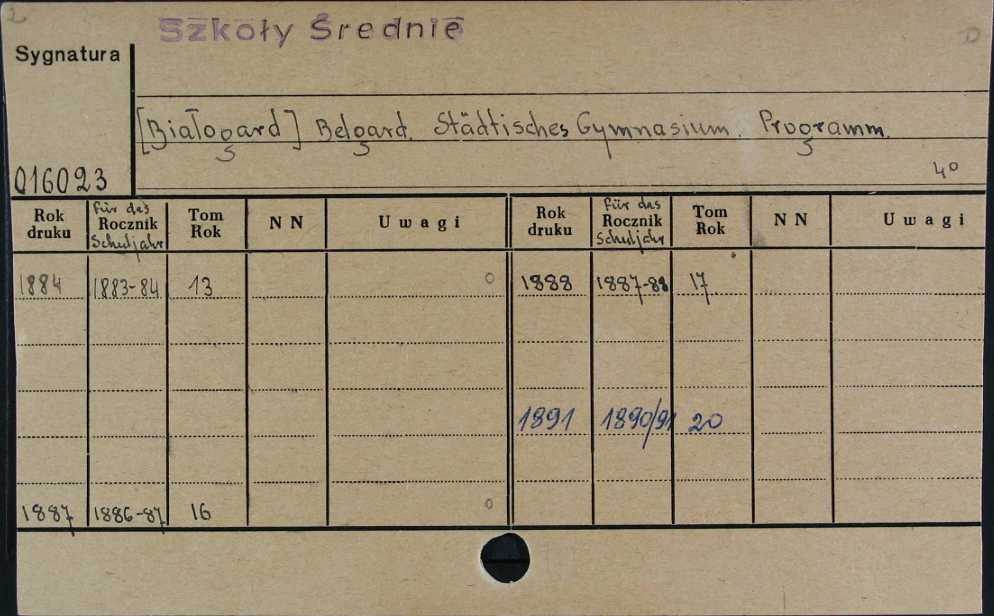 Szkoły Średnie
Sygnatura
[Białogard] Belgard. Städtisches Gymnasium. Programm.
016023
4°
Rok druku | für das Rocznik Schuljahr | Tom Rok | NN | Uwagi | Rok druku | für das Rocznik Schuljahr | Tom Rok | NN | Uwagi
1884 | 1883-84 | 13 | | o | 1888 | 1887-88 | 17
1891 | 1890/91 | 20
1887 | 1886-87 | 16 | | o